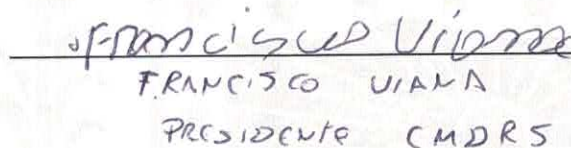 Francisco Viana
FRANCISCO VIANA
PRESIDENTE CMDRS